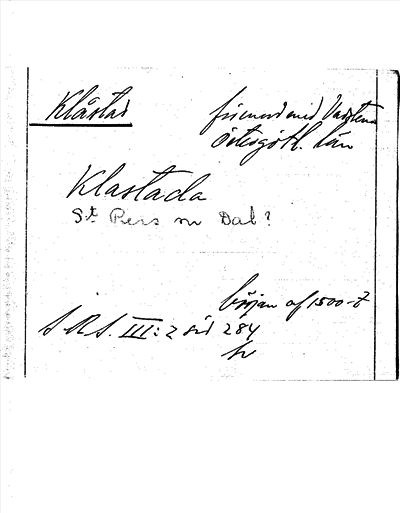 Klåstad
förenad med Vadstena
Östergötl. län
Klastada
St Pers sn Dal?
början af 1500-t
S.R.S. III:2 sid 284